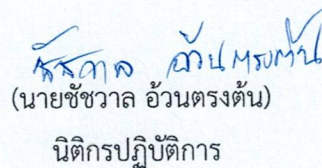 ชัชวาล อ้วนตรงต้น
(นายชัชวาล อ้วนตรงต้น)
นิติกรปฏิบัติการ